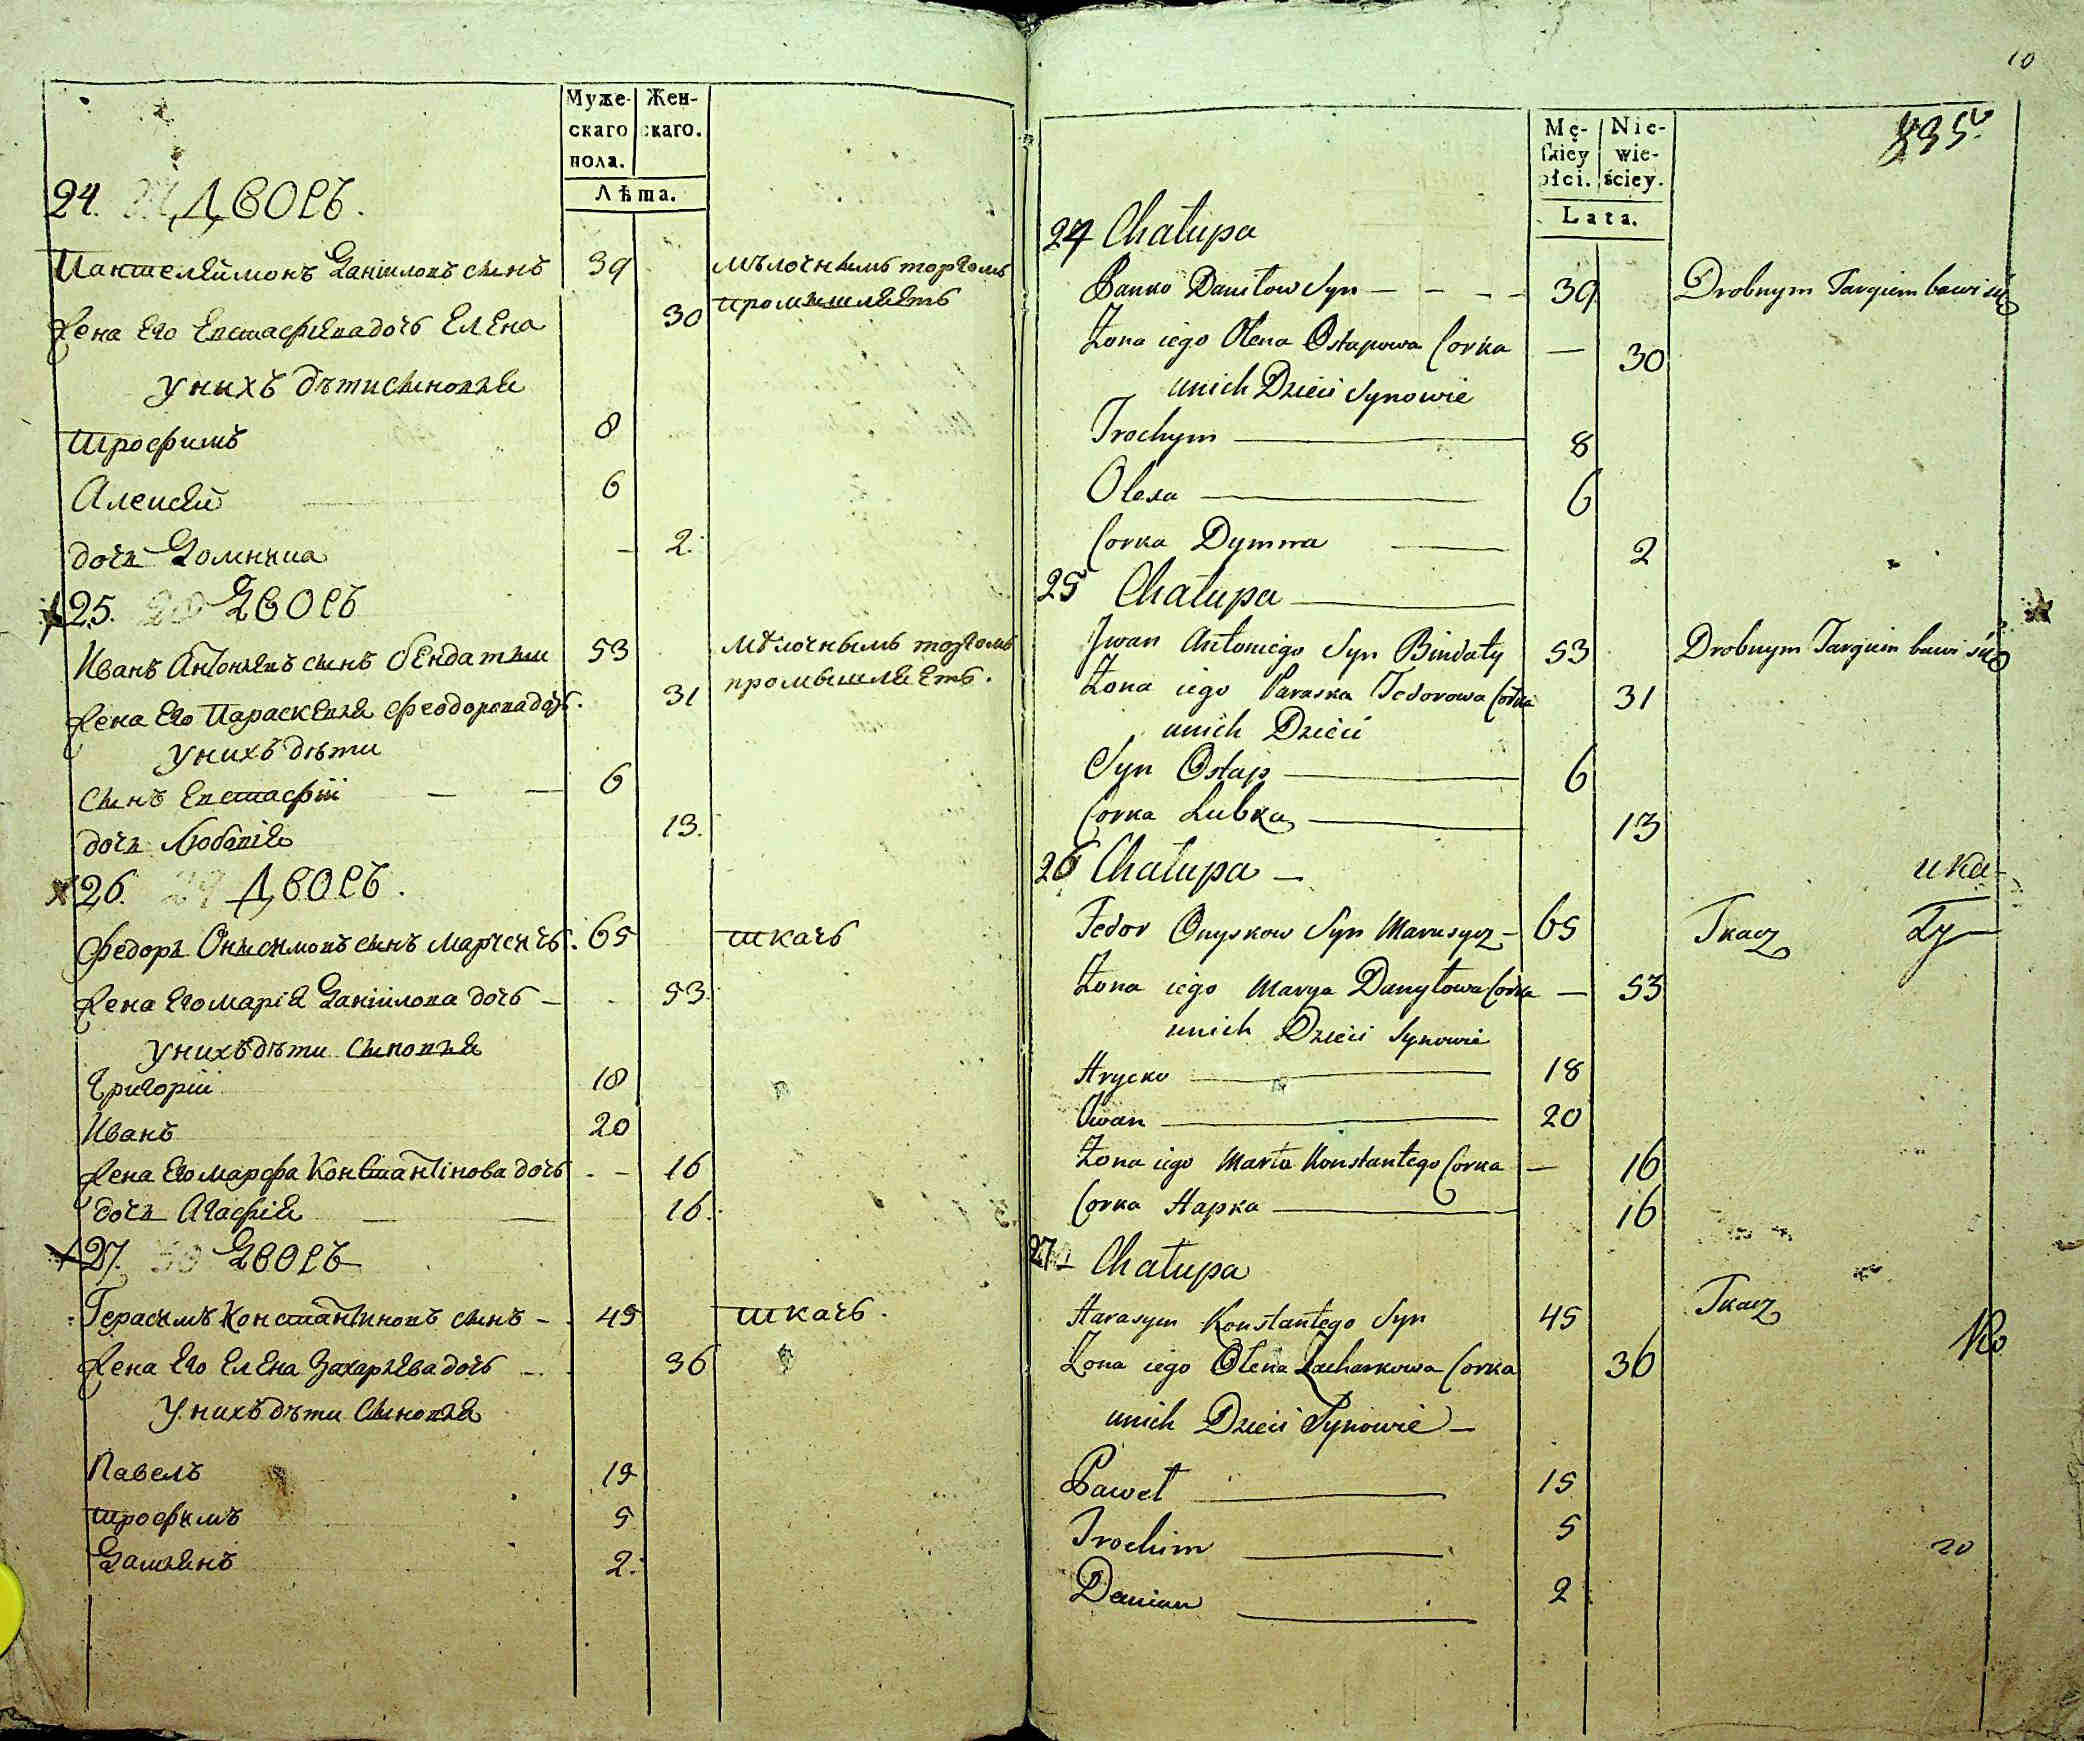 Муже-
скаго
пола.
Жен-
скаго.
Лѣта.
24. Дворъ.
Пантелеймонъ Даніиловъ сынъ 39 мѣлочнымъ торгомъ
промышляетъ
жена его Евстафіева дочь Елена 30
у нихъ дѣти сыновья
Трофимъ 8
Алексѣй 6
дочь Домникиа - 2.
25. Дворъ
Иванъ Антоніевъ сынъ бендатый 53 мѣлочнымъ торгомъ
промышляетъ.
жена его Параскевія Феодорова дочь. 31
у нихъ дѣти
сынъ Евстафій — — 6
дочь Любовія 13.
26. 29 Дворъ.
Федоръ Онисимовъ сынъ 65 ткачь
жена его марія Даніилова дочь - 53
у нихъ дѣти сыновья
Григорій 18
Иванъ 20
жена его марфа Константінова дочь - 16
дочь Агафія — — 16.
27. 30 Дворъ
Герасимъ Константиновъ сынъ - 45 ткачь.
жена его Елена Захаріева дочь - 36
У нихъ дѣти сыновья
Павелъ 15
Трофимъ 5
Даміянъ 2.
10
835
Mę-
skiey
płci.
Nie-
wie-
ściey.
Lata.
24 Chałupa
Panko Daniłow Syn - - - - 39 Drobnym Targiem bawi się
Żona iego Olena Ostapowa Corka — 30
unich Dzieci Synowie
Trochym — 8
Olexa — 6
Corka Dymna — 2
25 Chałupa —
Jwan Antoniego Syn Bindaty 53 Drobnym Targiem bawi się
Żona iego Paraska Fedorowa Corka 31
unich Dzieci
Syn Ostap — 6
Corka Lubka — 13
26 Chałupa —
ика-
Fedor Onyskow Syn Marusycz - 65 Tkacz
Żona iego Marya Danyłowa Corka — 53
unich Dzieci Synowie
Hrycko — 18
Iwan — 20
Żona iego Marta Konstantego Corka — 16
Corka Hapka — 16
27 Chałupa
Harasym Konstantego Syn 45 Tkacz
Żona iego Olena Zacharkowa Corka 36
unich Dzieci Synowie —
Paweł — 15
Trochim — 5
Demian — 2
20